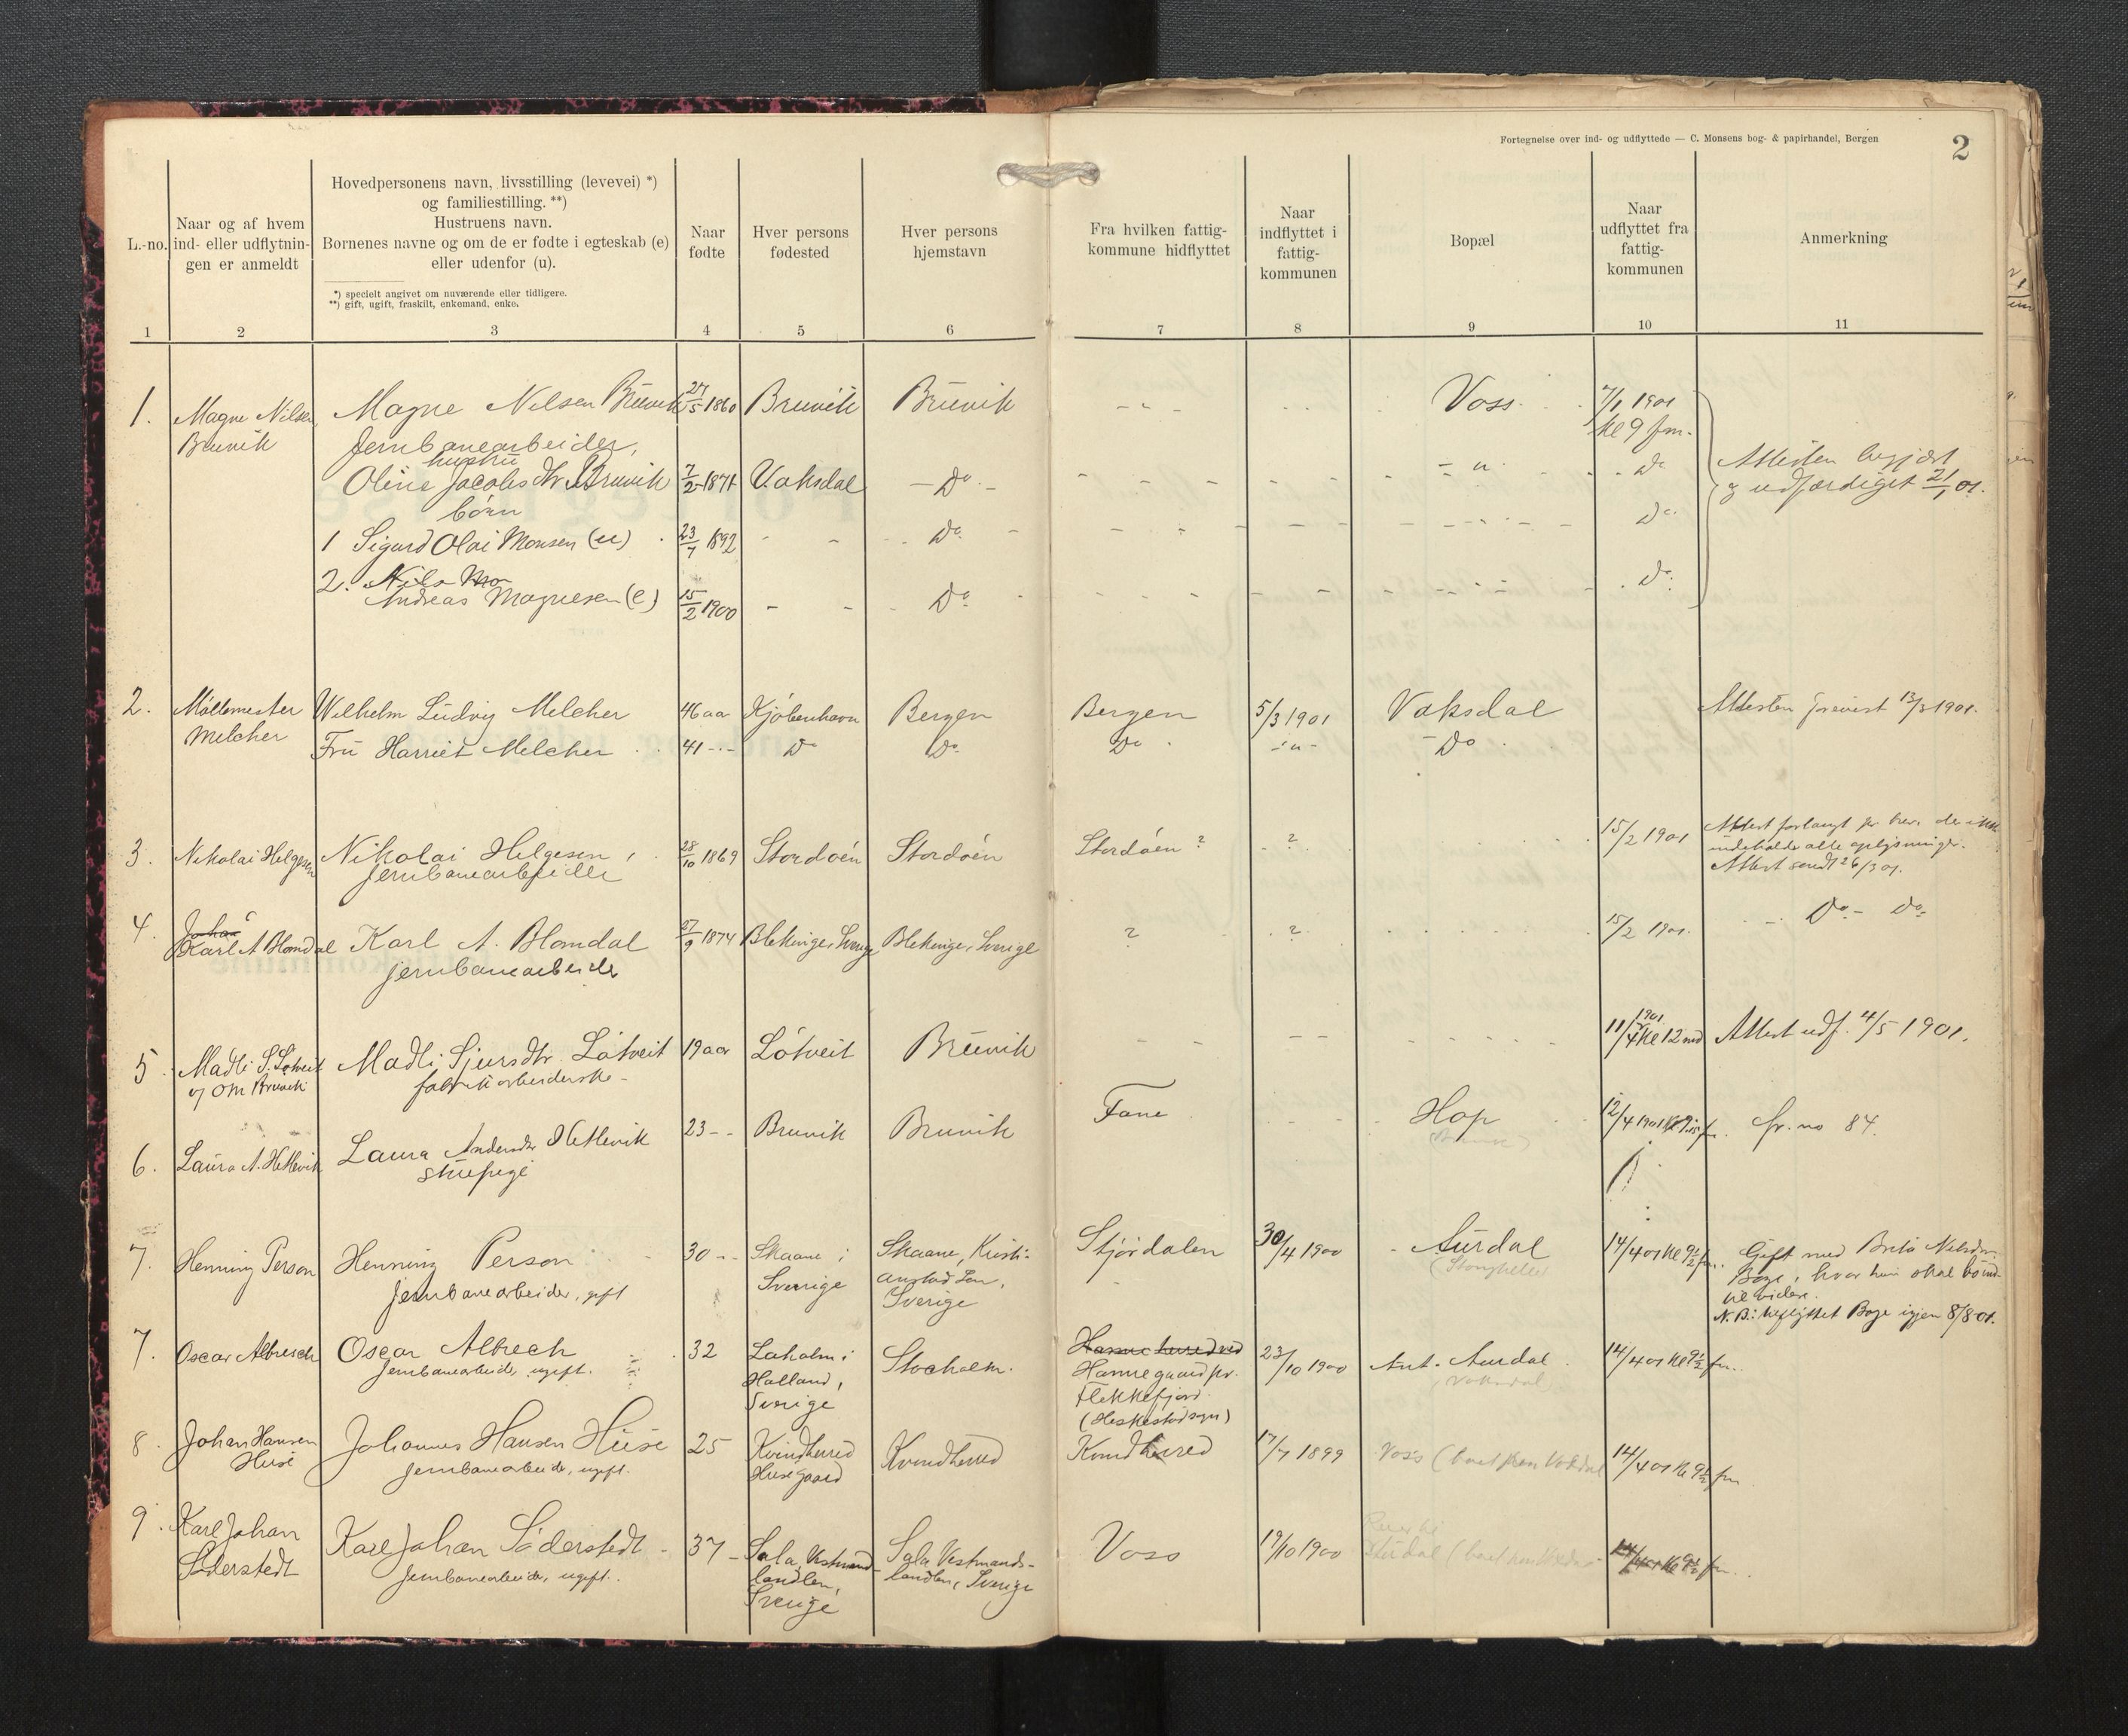 Fortegnelse over ind- og udflyttede — C. Monsens bog- & papirhandel, Bergen
2
L.-no.
Naar og af hvem
ind- eller udflytnin-
gen er anmeldt
Hovedpersonens navn, livsstilling (levevei) *)
og familiestilling. **)
Hustruens navn.
Børnenes navne og om de er fødte i egteskab (e)
eller udenfor (u).
*) specielt angivet om nuværende eller tidligere.
**) gift, ugift, fraskilt, enkemand, enke.
Naar
fødte
Hver persons
fødested
Hver persons
hjemstavn
Fra hvilken fattig-
kommune hidflyttet
Naar
indflyttet i
fattig-
kommunen
Bopæl
Naar
udflyttet fra
fattig-
kommunen
Anmerkning
1 2 3 4 5 6 7 8 9 10 11
1. Magne Nilsen Magne Nilsen Bruvik 27/5 1860 Bruvik Bruvik - - - Voss 7/1 1901
Bruvik Jernbanearbeider, kl 9 fm.
hustru
Oline Jacobsdtr Bruvik 2/2 1871 Vaksdal Do - " - Do
Attesten begjært
og udfærdiget 21/1 01.
børn
1 Sigurd Olai Monsen (u) 23/7 1892 - - Do Do
2. Nils Mo
Andreas Magnesen (e) 15/2 1900 - - Do Do
2. Møllemester Wilhelm Ludvig Melcher 46 aa Kjøbenhavn Bergen Bergen 5/3 1901 Vaksdal Attesten 13/3 1901.
Melcher Fru Harriet Melcher 41 - - Do Do Do - " - Do
3. Nikolai Helgesen Nikolai Helgesen, 28/10 1869 Stordøen Stordøen Stordøen ? ? 15/2 1901 Attest forlangt pr brev der ikke
jernbanearbeider indeholdt alle oplysninger.
Attest sendt 26/3 01.
4. Johan
Karl A Blomdal Karl A. Blomdal 27/9 1874 Blekinge, Sverige Blekinge, Sverige ? ? 15/2 1901. Do - Do
jernbanearbeider
5. Madli S. Løtveit Madli Sjursdtr. Løtveit 19 aar Løtveit Bruvik - - - - 11/4 1901 kl 12 md Attest udf. 4/5 1901.
og OM Bruvik fabrikarbeiderske -
6. Laura A. Hetlevik Laura Andersdtr Hetlevik 23 - - Bruvik Bruvik Fane - - Hop 12/4 1901 fm. fr. no 84.
stuepige
7. Henning Person Henning Person 30 - - Skaane i Skaane, Kristi- Stjørdalen 30/4 1900 Aurdal 14/4 01 kl 9½ fm. Gift med Brita Nilsdtr.
jernbanearbeider, gift Sverige anstad Len, (Stanghelle) Boge, hvor hun skal bo ind-
Sverige til videre.
N.B.: tilflyttet Boge igjen 8/8 01.
7. Oscar Albresch Oscar Albrech 32 Laholm i Stocholm. 23/10 1900 Ant. Aurdal 14/4 01 kl 9½ fm.
jernbanearbeider, ugift. Halland, Hamregaard pr. Vaksdal
Sverige Flekkefjord.
(Heskestad sogn)
8. Johan Hansen Johannes Hansen Huse 25 Kvindherred Kvindherred Kvindherred 17/7 1899 Voss (boet paa Vaksdal 14/4 01 kl 9½ fm
Huse jernbanearbeider, ugift. Huse gaard
9. Karl Johan Karl Johan Söderstedt - 37 - Sala, Vestmand- Sala Vestmands- Voss 19/10 1900 14/4 01 kl 9½ fm.
Söderstedt jernbanearbeider, ugift. landlen, landlen, Sverige
Sverige